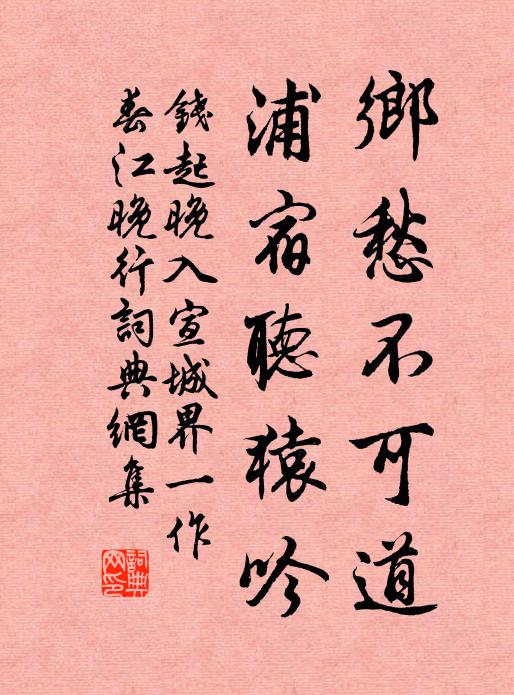 鄉愁不可道
浦宿聽猿吟
錢起晚入宣城界一作
春江晚行詞典網集
詞典網印